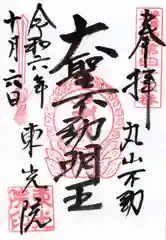 奉拝
丸山不動
大聖不動明王
令和六年
十月六日
東光院